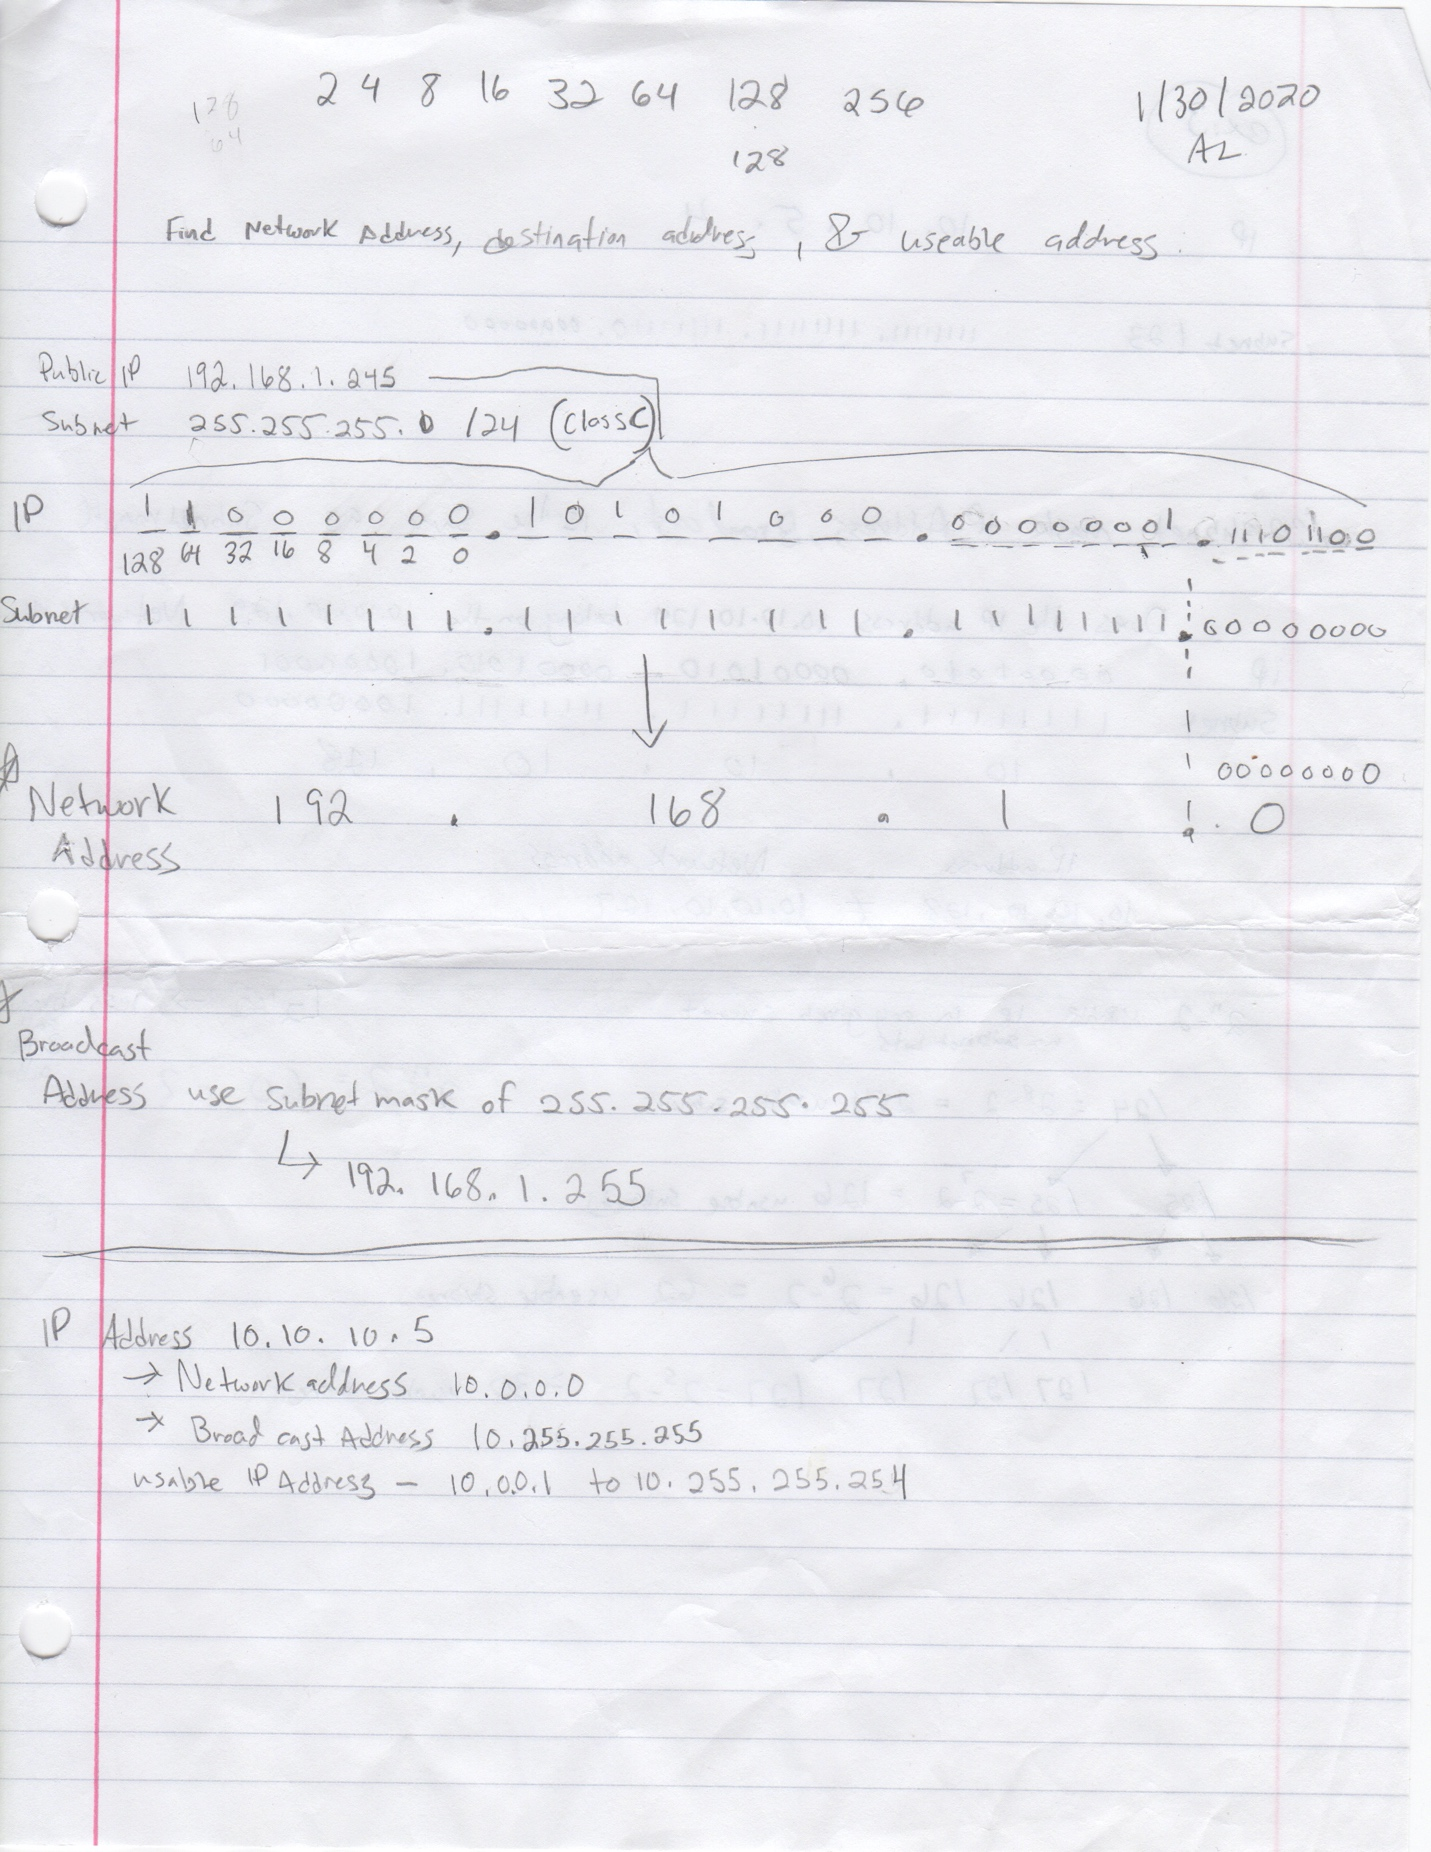 2 4 8 16 32 64 128 256
1/30/2020
128
64
128
AL
Find Network Address, destination address, & useable address.
Public IP 192.168.1.245
Subnet 255.255.255.0 /24 (Class C)
IP 1 1 0 0 0 0 0 0 . 1 0 1 0 1 0 0 0 . 0 0 0 0 0 0 0 1 . 1 1 1 0 1 1 0 0
128 64 32 16 8 4 2 0
Subnet 1 1 1 1 1 1 1 1 . 1 1 1 1 1 1 1 1 . 1 1 1 1 1 1 1 1 . 0 0 0 0 0 0 0 0
00000000
Network 192 . 168 . 1 . 0
Address
Broadcast
Address use subnet mask of 255.255.255.255
192.168.1.255
IP Address 10.10.10.5
→ Network address 10.0.0.0
→ Broad cast Address 10.255.255.255
usable IP Address - 10.0.0.1 to 10.255.255.254